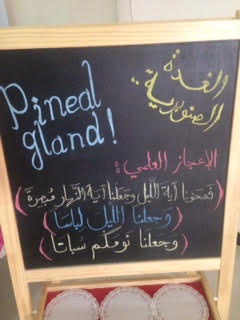 Pineal
gland!
الغدة
الصنوبرية:
الإعجاز العلمي:
(فمحونا آية الليل وجعلنا آية النهار مبصرة)
(وجعلنا الليل لباسا)
(وجعلنا نومكم سباتا)